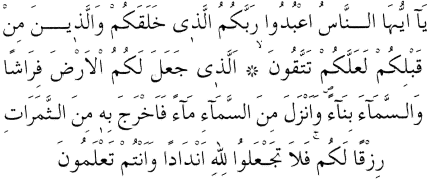 يَآ اَيُّهَا النَّاسُ اعْبُدُوا رَبَّكُمُ الَّذ۪ى خَلَقَكُمْ وَالَّذ۪ينَ مِنْ
قَبْلِكُمْ لَعَلَّكُمْ تَتَّقُونَ ۙ ❊ اَلَّذ۪ى جَعَلَ لَكُمُ الْاَرْضَ فِرَاشًا
وَالسَّمَآءَ بِنَآءً ۖ وَاَنْزَلَ مِنَ السَّمَآءِ مَآءً فَاَخْرَجَ بِه۪ مِنَ الثَّمَرَاتِ
رِزْقًا لَكُمْ ۚ فَلَا تَجْعَلُوا لِلّٰهِ اَنْدَادًا وَاَنْتُمْ تَعْلَمُونَ